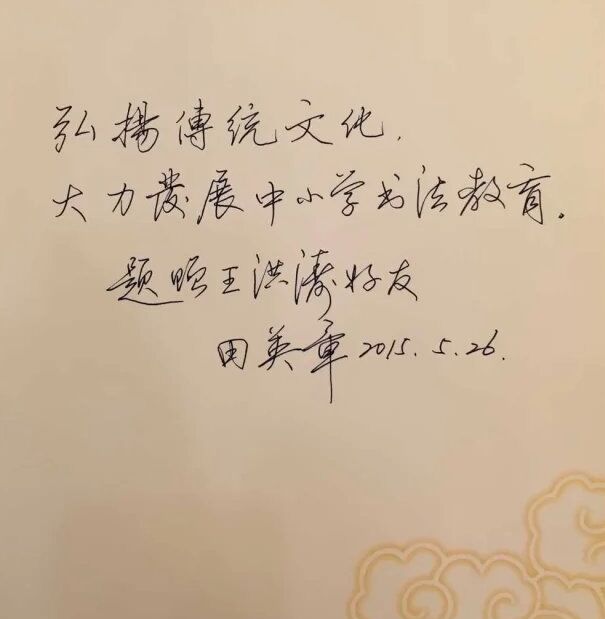 弘揚傳统文化.
大力發展中小学书法教育。
题赠王洪涛好友
田英章2015.5.26.